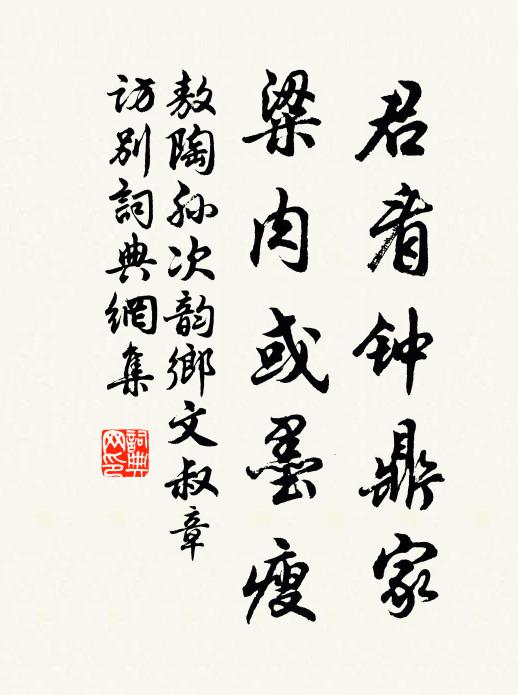 君看钟鼎家
粱肉或墨瘦
敖陶孙次韵鄉文叔章
访别詞典網集
詞典网印